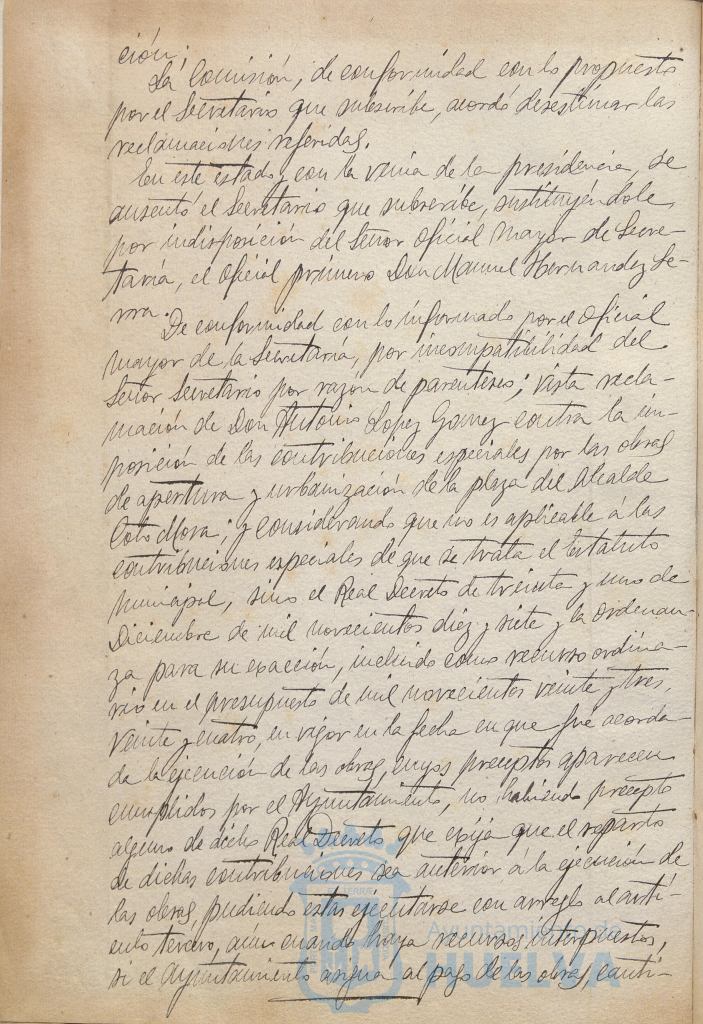 ción.
La Comisión, de conformidad con lo propuesto
por el Secretario que subscribe, acordó desestimar las
reclamaciones referidas.
En este estado y con la venia de la presidencia, se
ausentó el Secretario que subscribe, sustituyéndole,
por indisposición del Señor Oficial Mayor de Secre-
taría, el Oficial primero Don Manuel Hernandez Se-
rra.
De conformidad con lo informado por el Oficial
mayor de la Secretaría, por incompatibilidad del
Señor Secretario por razón de parentesco; vista recla-
mación de Don Antonio Lopez Gomez contra la im-
posición de las contribuciones especiales por las obras
de apertura y urbanización de la plaza del Alcalde
Coto Mora; y considerando que no es aplicable á las
contribuciones especiales de que se trata el Estatuto
Municipal, sino el Real Decreto de treinta y uno de
Diciembre de mil novecientos diez y siete y la ordenan-
za para su exacción, incluido como recurso ordina-
rio en el presupuesto de mil novecientos veinte y tres,
veinte y cuatro, en vigor en la fecha en que fue acorda-
da la ejecución de las obras, cuyos preceptos aparecen
cumplidos por el Ayuntamiento, no habiendo precepto
alguno de dicho Real Decreto que exija que el reparto
de dichas contribuciones sea anterior á la ejecución de
las obras, pudiendo estas ejecutarse con arreglo al artí-
culo tercero, aún cuando haya recursos interpuestos,
si el Ayuntamiento asigna al pago de las obras, canti-
Ayuntamiento de
HUELVA